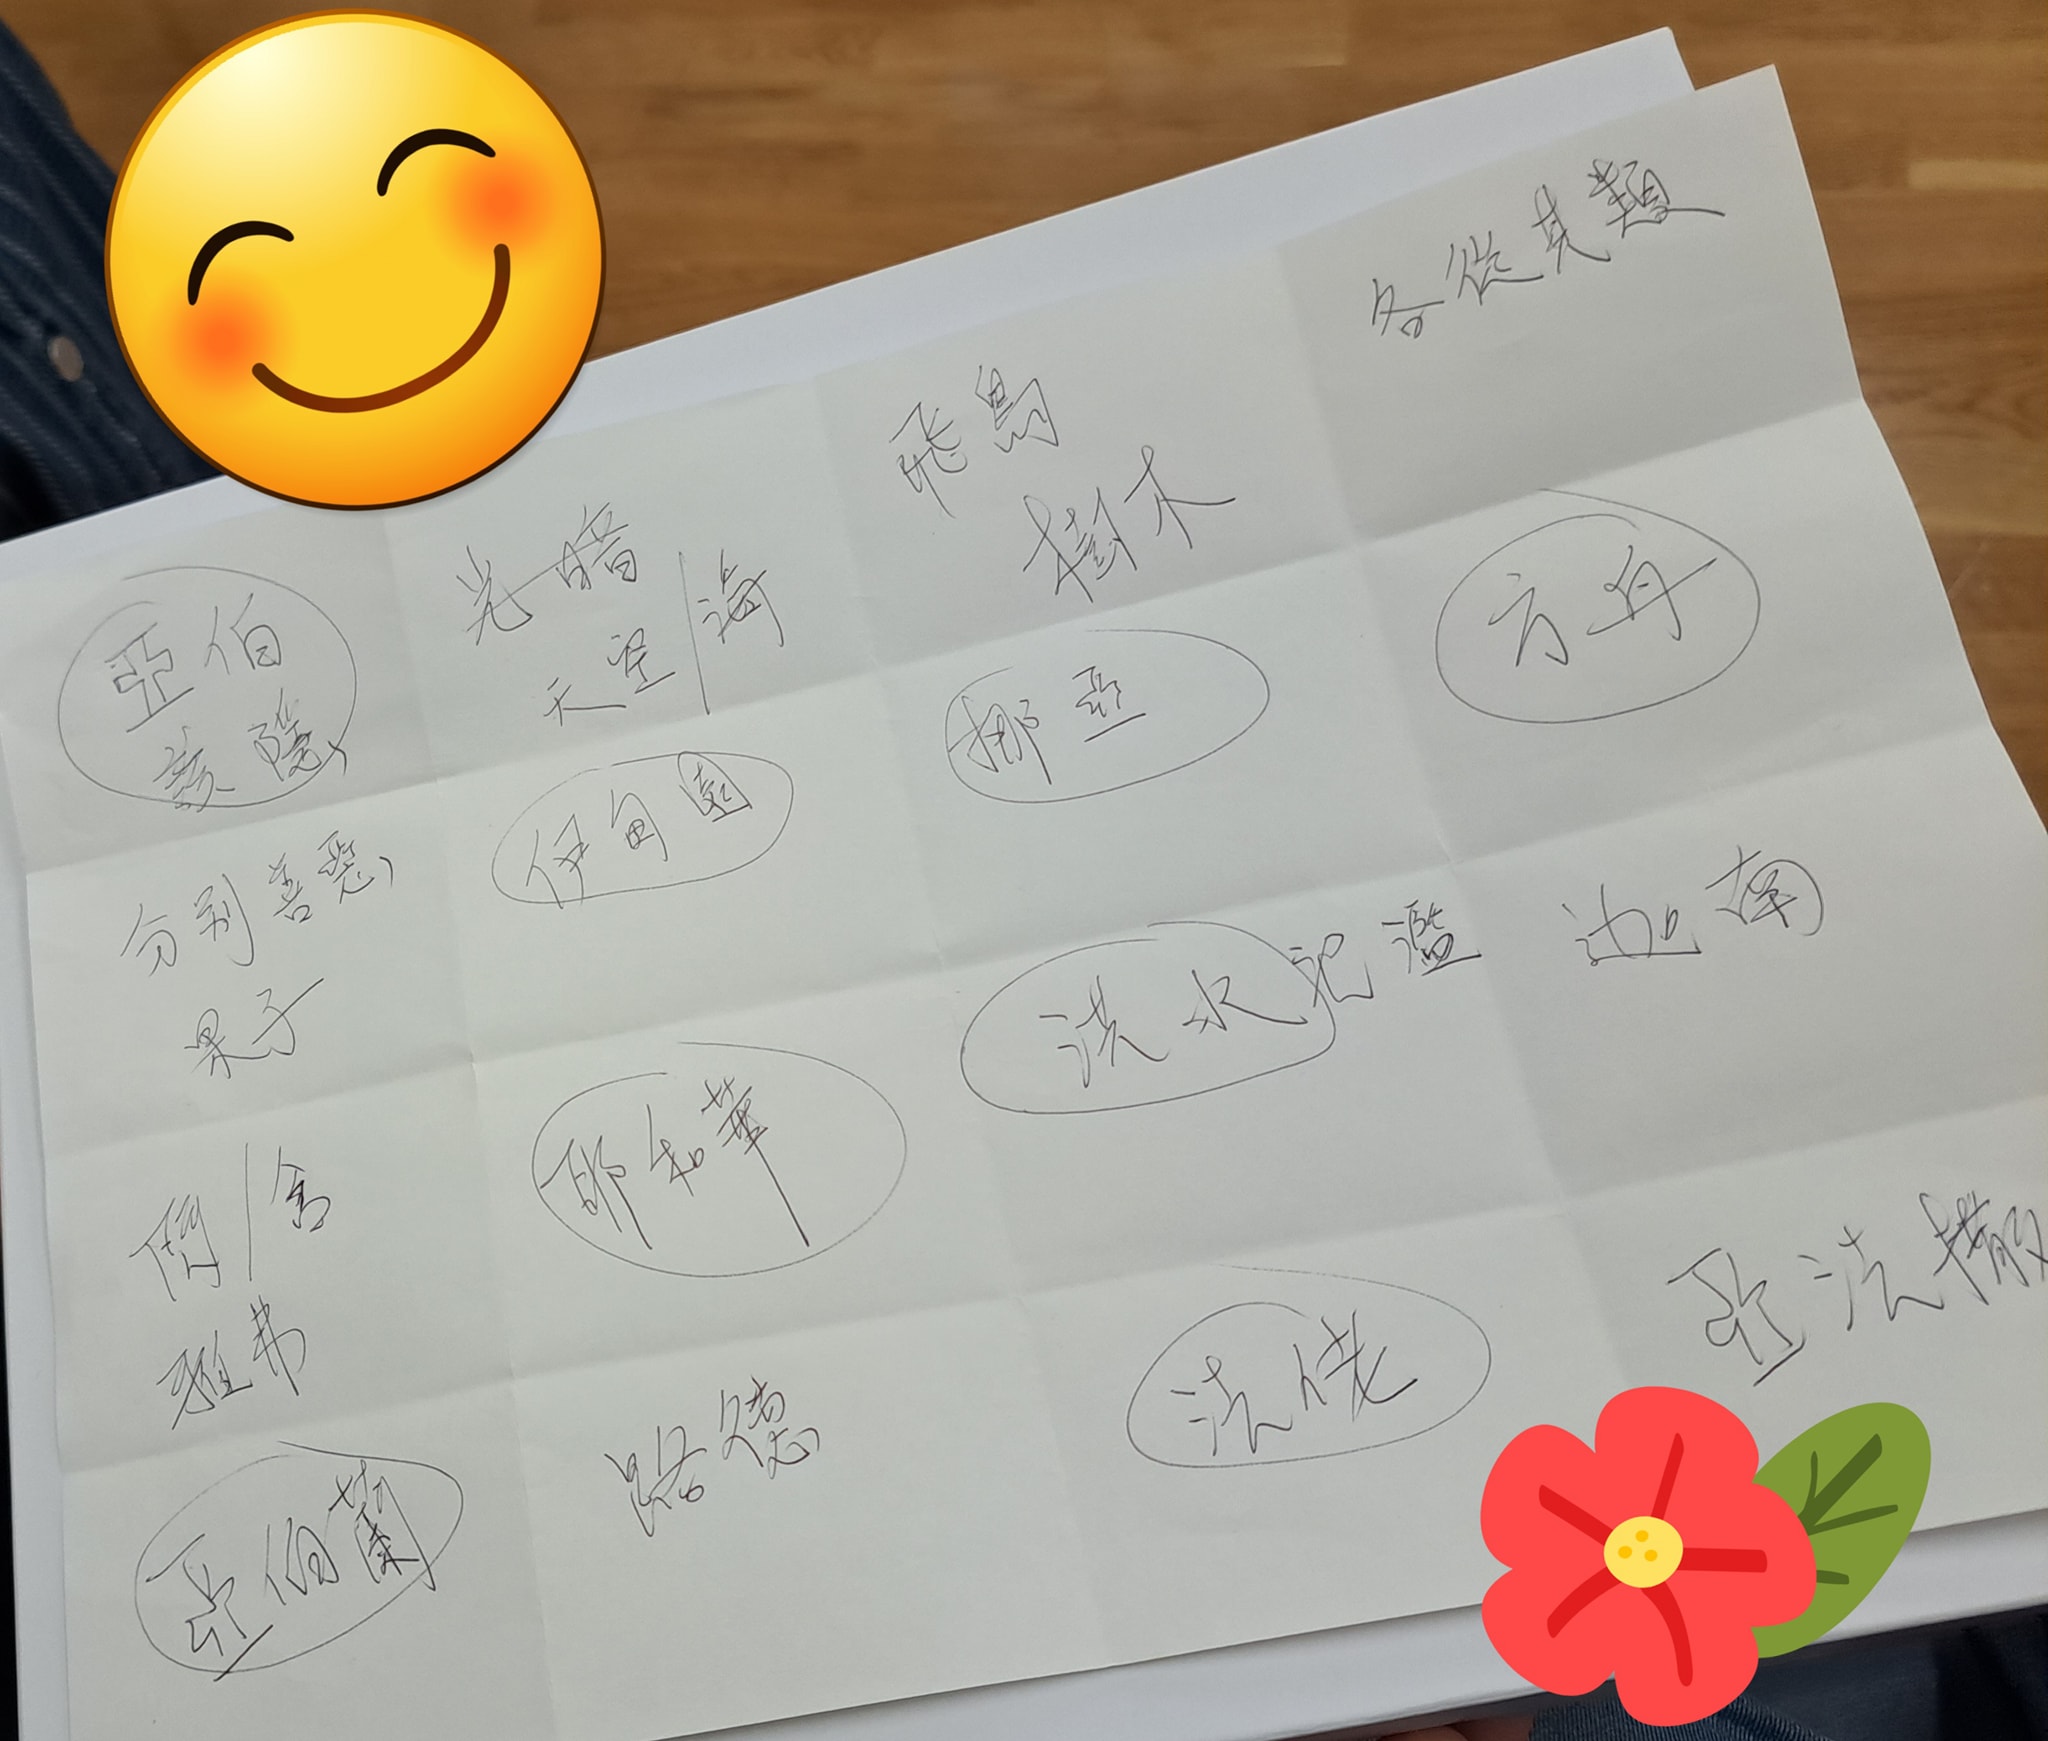 光暗
天空/海
飛鳥
樹木
各從其類
亞伯
該隱
伊甸園
挪亞
方舟
分別善惡
果子
耶和華
洪水氾濫
迦南
閃/含
雅弗
路德
法佬
亞法撒
亞伯蘭